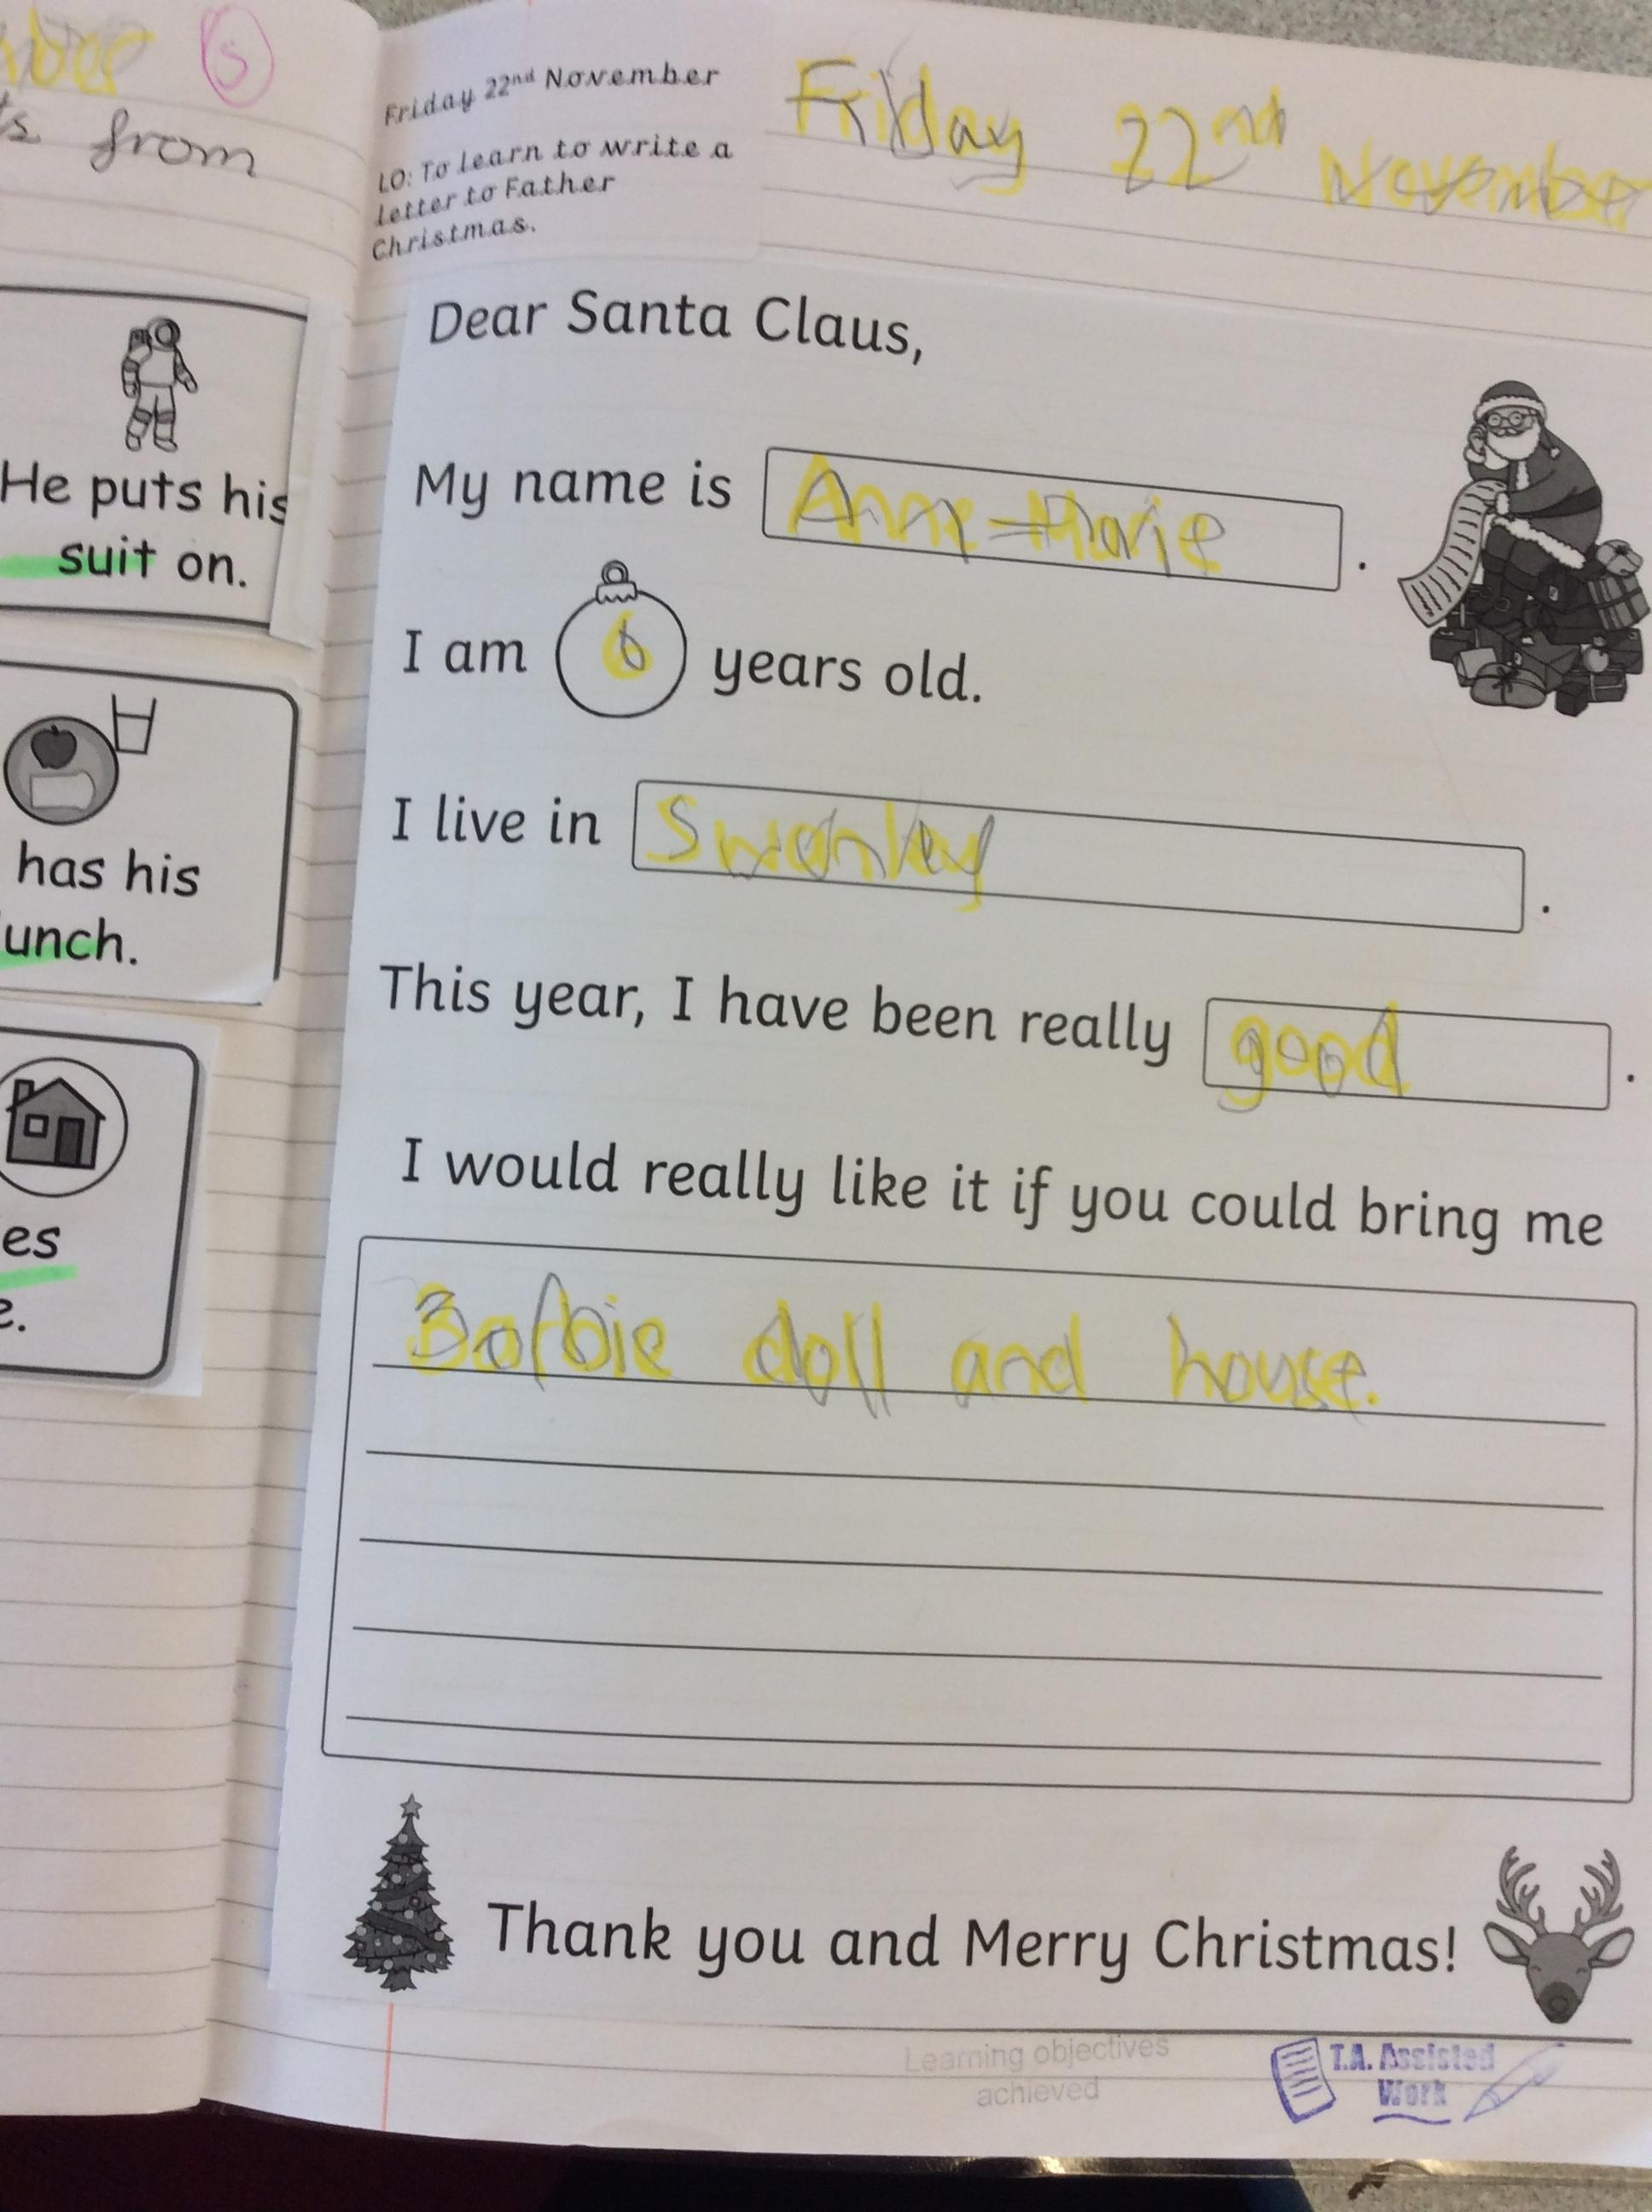 s from
He puts his
suit on.
has his
unch.
es
e.
Friday 22nd November
LO: To learn to write a
letter to Father
Christmas.
Friday 22nd November
Dear Santa Claus,
My name is Anne-Marie.
I am 6 years old.
I live in Swanley.
This year, I have been really good.
I would really like it if you could bring me
Barbie doll and house.
Thank you and Merry Christmas!
Learning objectives
achieved
T.A. Assisted
Work